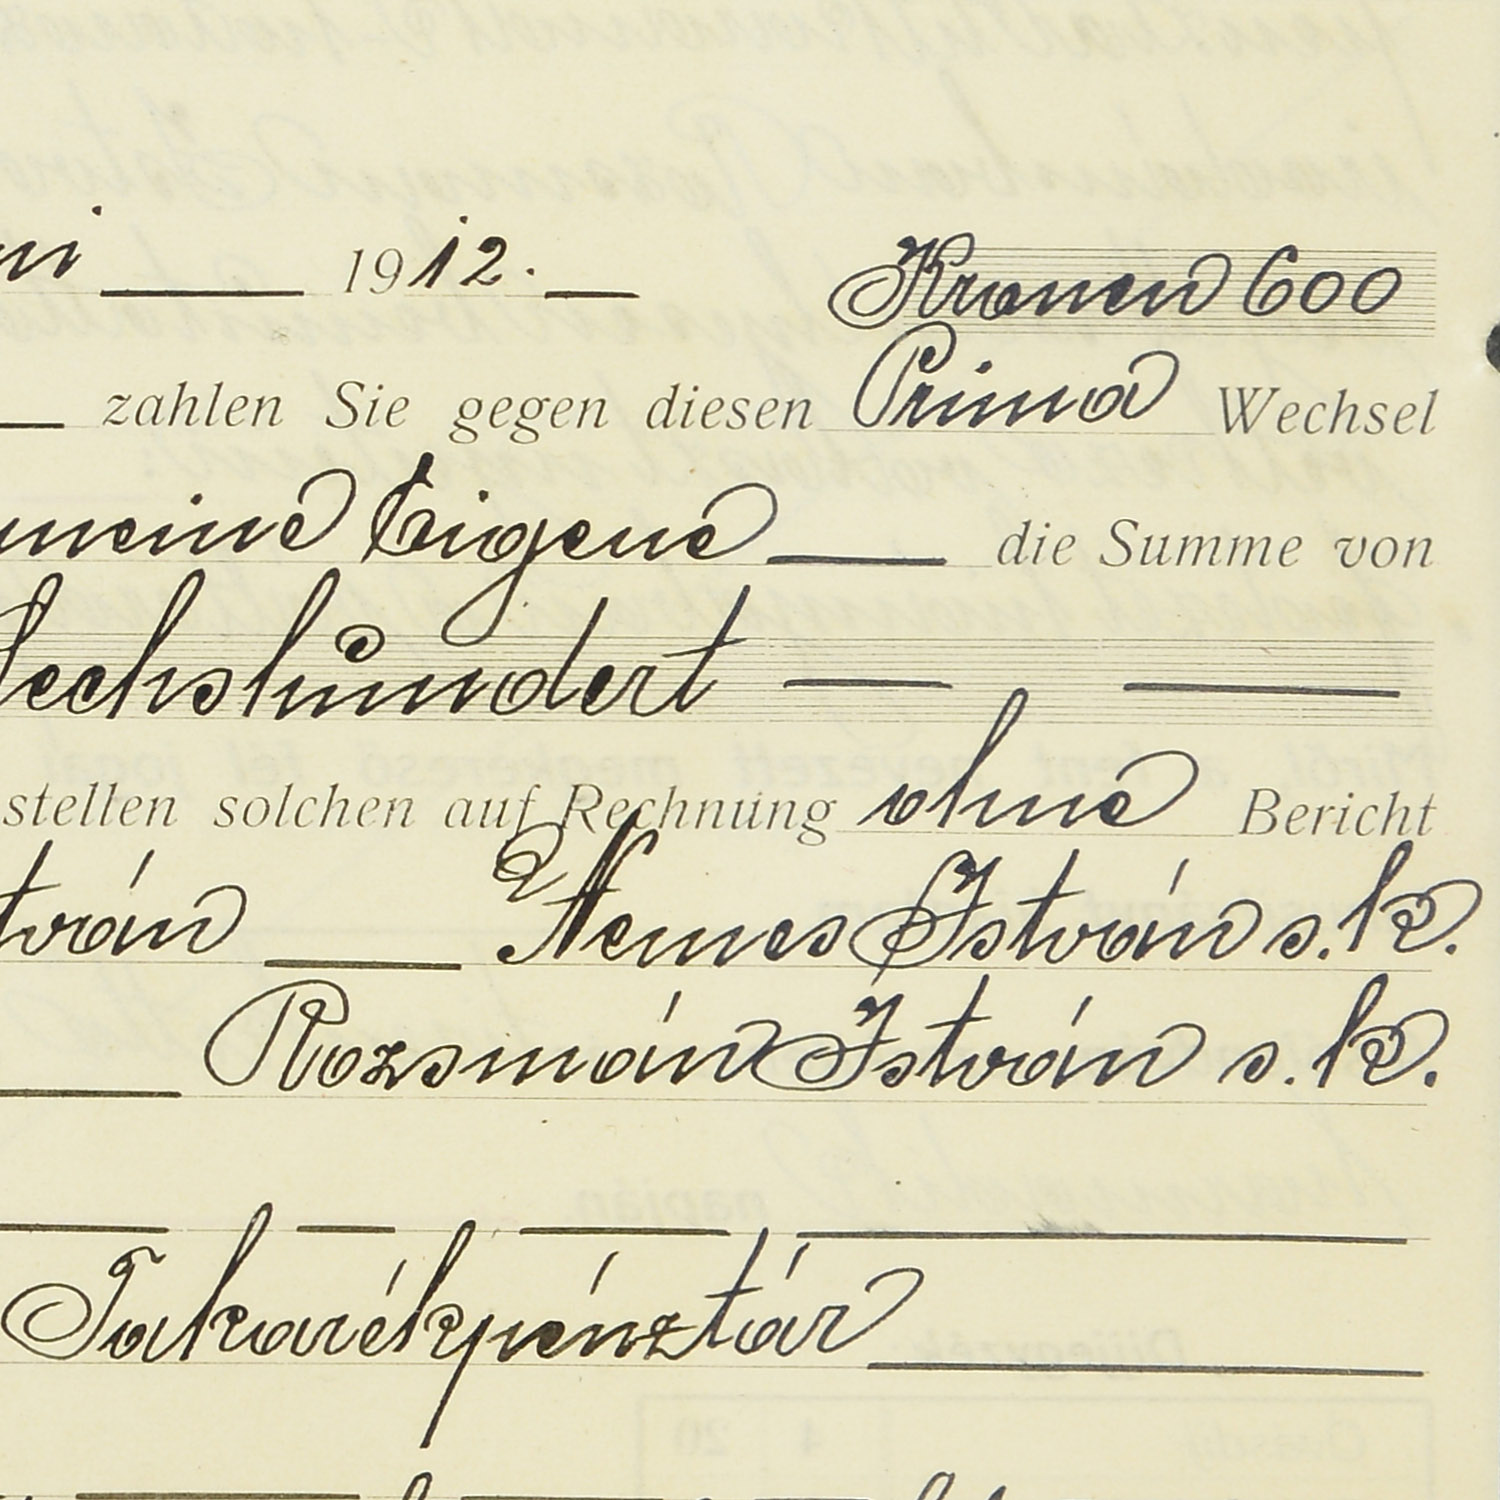 1912. Kronen 600
zahlen Sie gegen diesen Prima Wechsel
meine Eigene die Summe von
Sechshundert
stellen solchen auf Rechnung ohne Bericht
Nemes István s.k.
Rozsmán István s.k.
Takarékpénztár